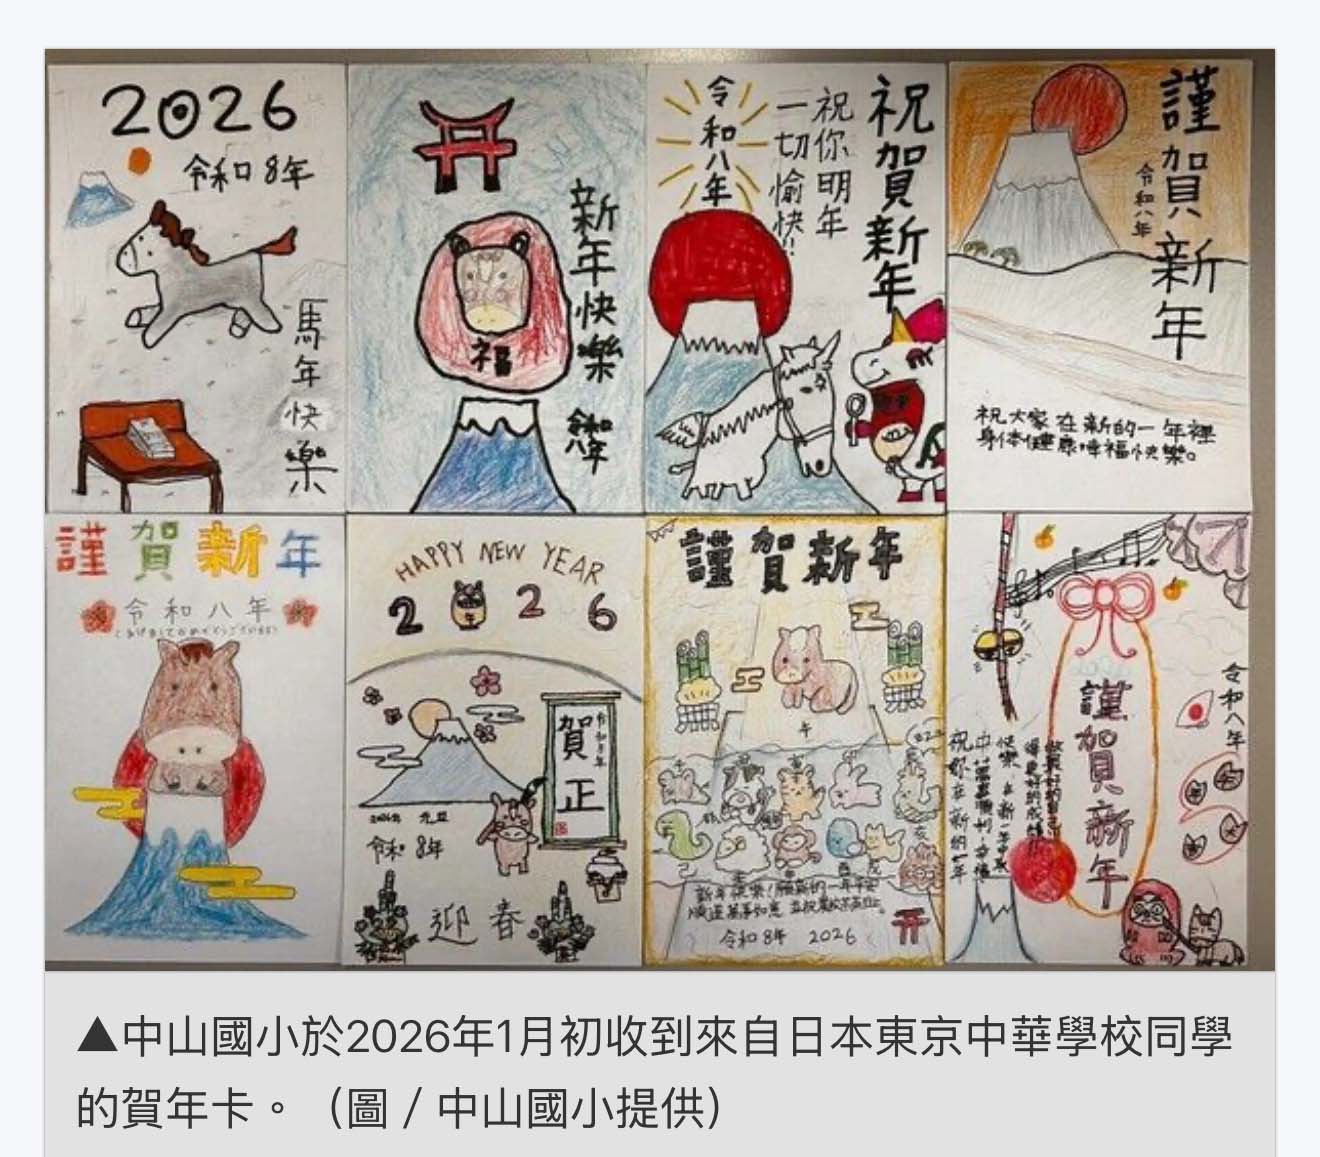 2026
令和8年
馬年快樂
新年快樂
福
令和八年
祝賀新年
祝你明年
一切愉快!!
令和八年
謹賀新年
令和八年
祝大家在新的一年裡
身体健康幸福快樂。
謹賀新年
令和八年
HAPPY NEW YEAR
2 26
賀正
2026年 元旦
令和 8年
迎春
謹賀新年
午
新年快樂!願新的一年平安
順遂萬事如意
令和8年 2026
謹賀新年
令和八年
祝你在新的一年
▲中山國小於2026年1月初收到來自日本東京中華學校同學
的賀年卡。（圖／中山國小提供）